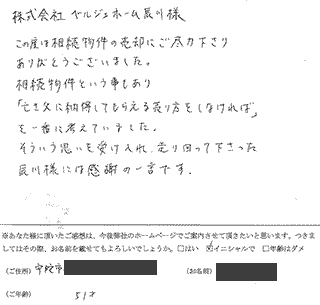 株式会社 ベルジェホーム 辰川様
この度は相続物件の売却にご尽力下さり
ありがとうございました。
相続物件という事もあり
「亡き父に納得してもらえる売り方をしなければ」
を一番に考えていました。
そういう思いを受け入れ、走り回って下さった
辰川様には感謝の一言です。
※あなた様に頂いたご感想は、今後弊社のホームページでご案内させて頂きたいと思います。つきま
してはその際、お名前を載せてもよろしいでしょうか。□はい ☑イニシャルで □年齢はダメ
(ご住所) 宇陀市 (お名前)
(ご年齢) 51才